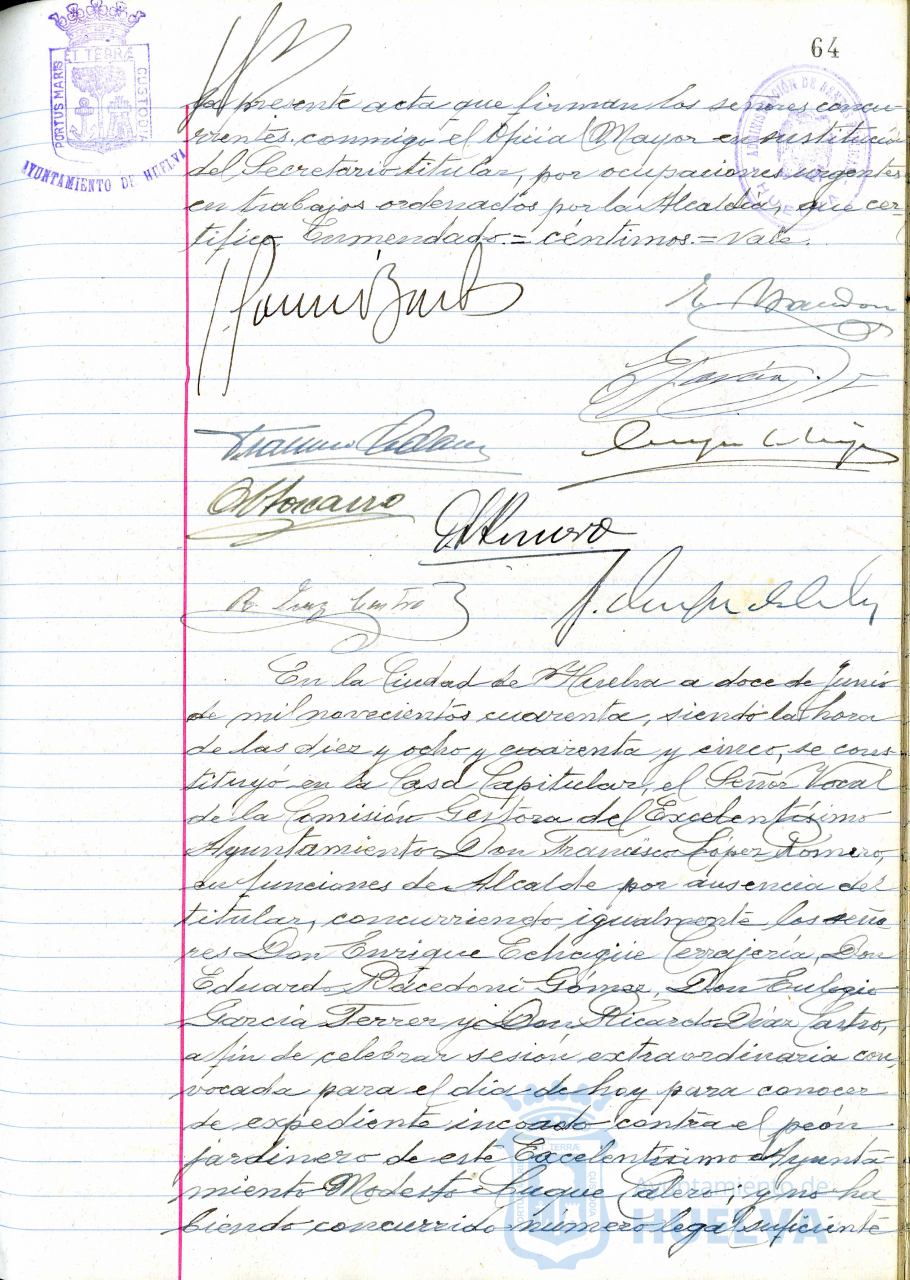 64
PORTUS MARIS
ET TERRÆ
CUSTODIA
AYUNTAMIENTO DE HUELVA
la presente acta que firman los señores concu-
rrentes conmigo el Oficial Mayor en sustitución
del Secretario titular, por ocupaciones urgentes
en trabajos ordenados por la Alcaldía, que cer-
tifico. Enmendado = céntimos = Vale.
R. Díaz Castro
En la Ciudad de Huelva a doce de Junio
de mil novecientos cuarenta, siendo la hora
de las diez y ocho y cuarenta y cinco, se cons-
tituyó en la Casa Capitular, el Señor Vocal
de la Comisión Gestora del Excelentísimo
Ayuntamiento Don Francisco López Romero,
en funciones de Alcalde por ausencia del
titular, concurriendo igualmente los seño-
res Don Enrique Echagüe Cerrajería, Don
Eduardo Dácedoni Gómez, Don Eulogio
García Ferrer y Don Ricardo Díaz Castro,
a fin de celebrar sesión extraordinaria con-
vocada para el dia de hoy para conocer
de expediente incoado contra el peón
jardinero de este Excelentísimo Ayunta-
miento Modesto Luque Calero, y no ha-
biendo concurrido número legal suficiente
Ayuntamiento de
HUELVA